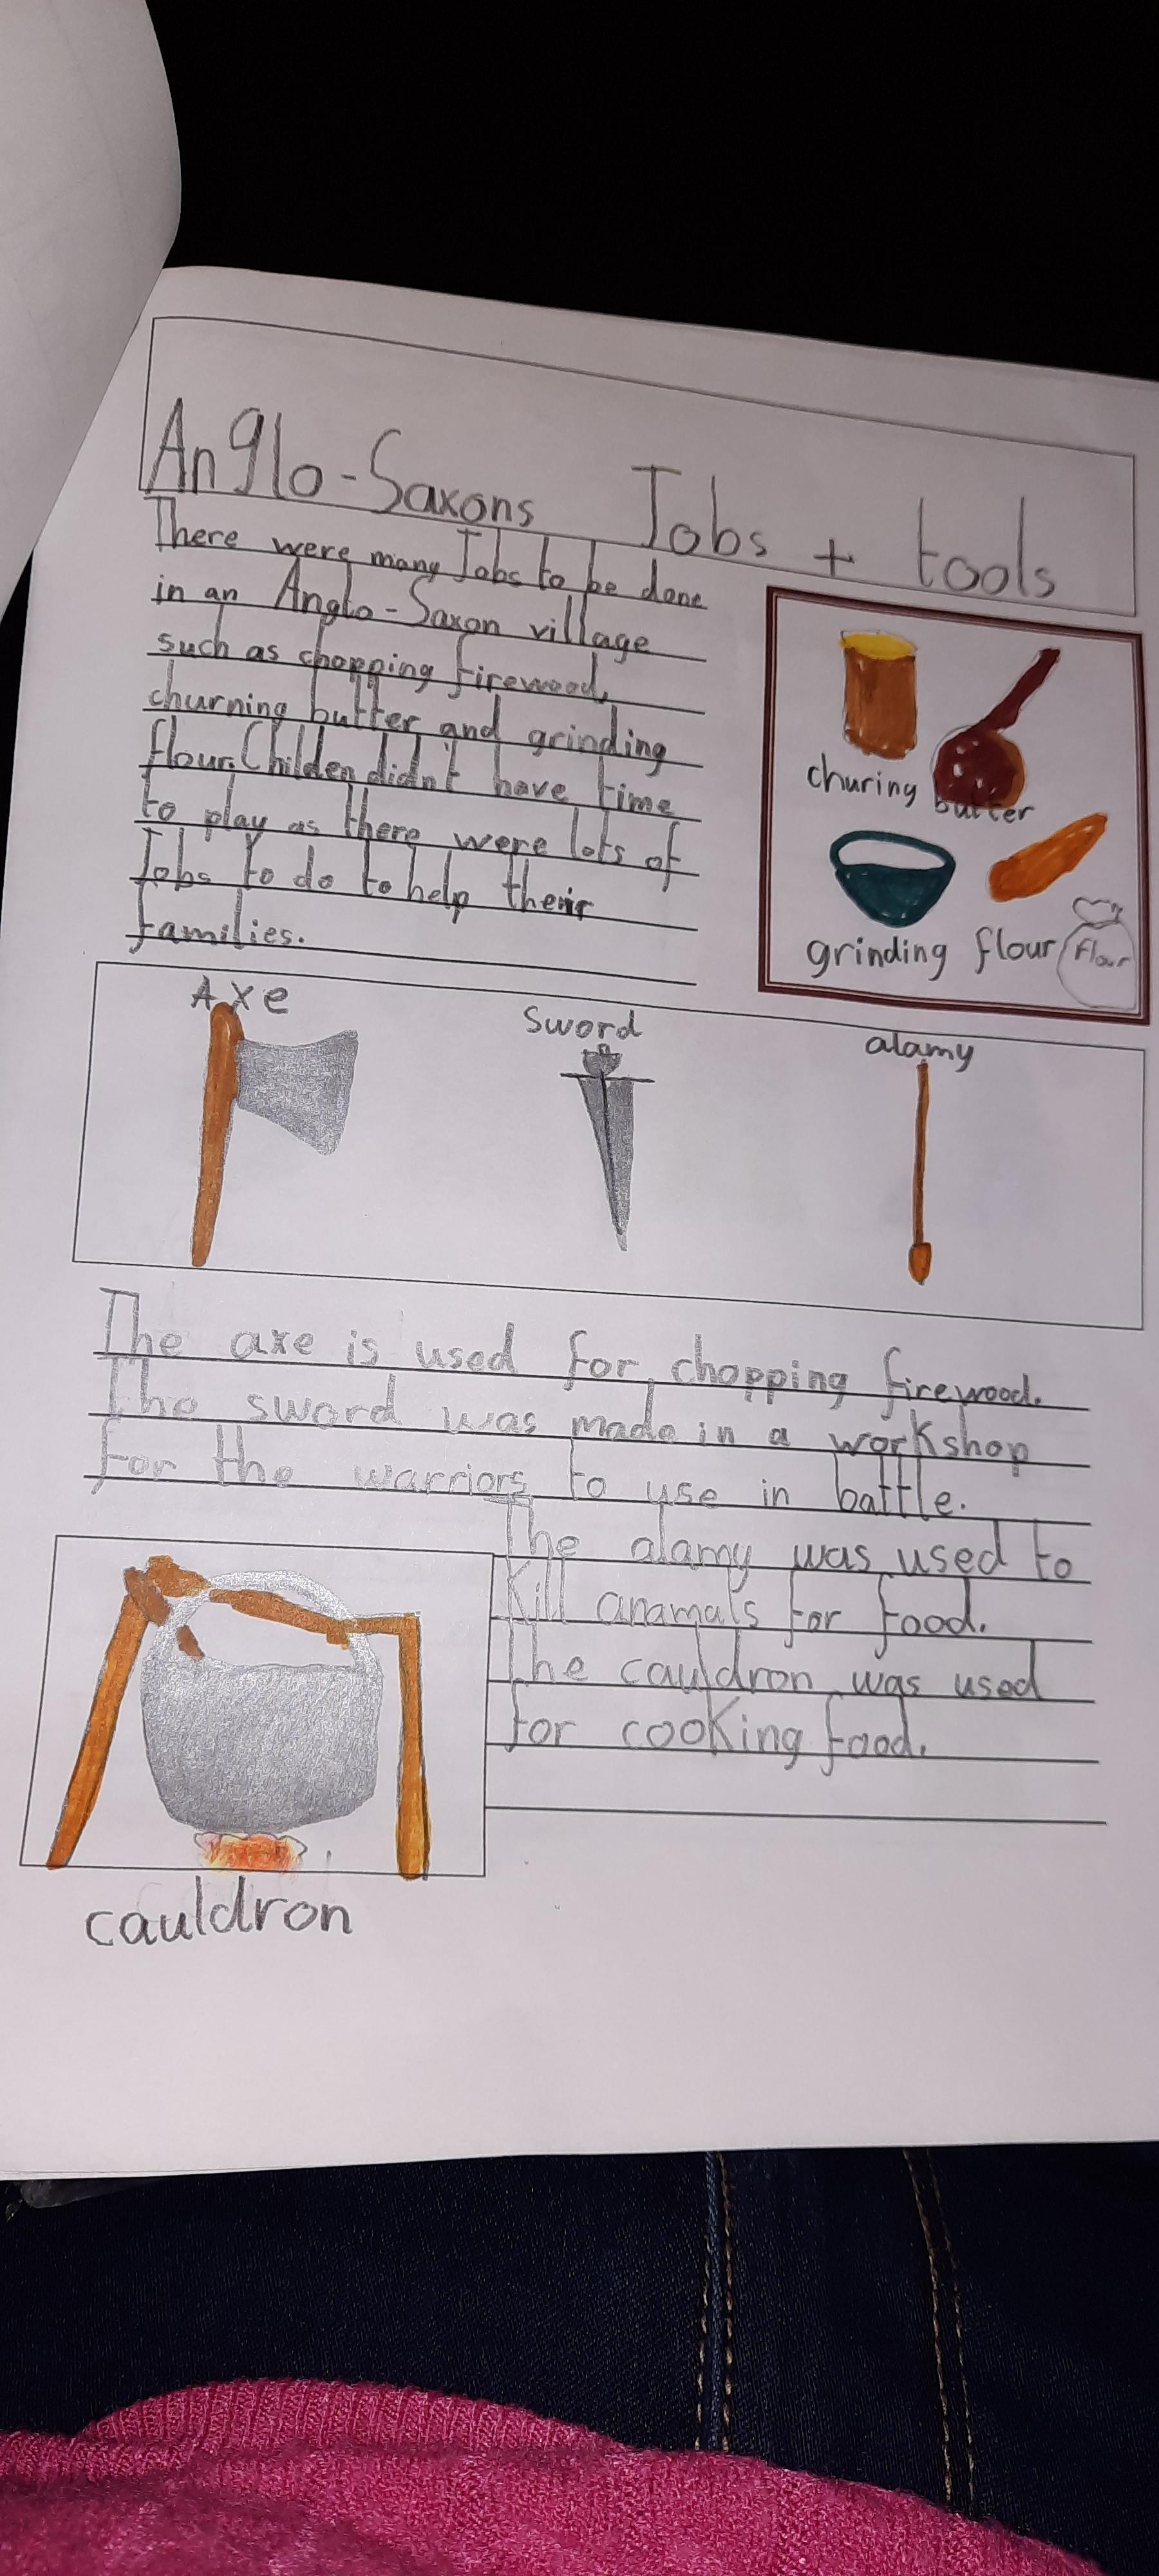 Anglo-Saxons Jobs + tools
There were many Jobs to be done
in an Anglo-Saxon village
such as chopping firewood,
churning butter and grinding
flour. Childen didn't have time
to play as there were lots of
Jobs to do to help their
families.
churing butter
grinding flour
Flour
Axe
Sword
alamy
The axe is used for chopping firewood.
The sword was made in a workshop
for the warriors to use in battle.
The alamy was used to
kill anamals for food.
The cauldron was used
for cooking food.
cauldron